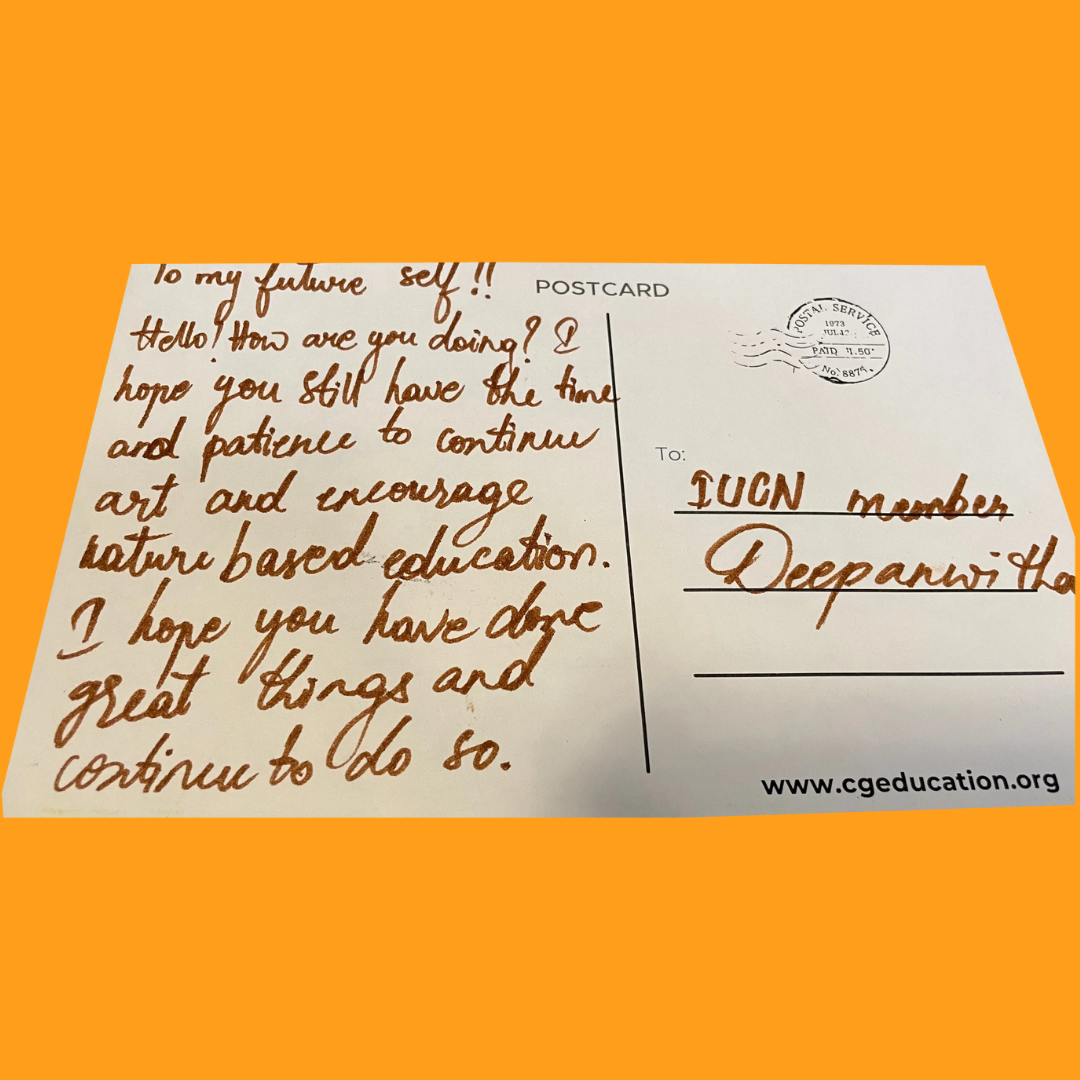 To my future self!!
Hello! How are you doing? I
hope you still have the time
and patience to continue
art and encourage
nature based education.
I hope you have done
great things and
continue to do so.
POSTCARD
POSTAL SERVICE
1973
PAID
No. 8875
To:
IUCN member
Deepanwitha
www.cgeducation.org